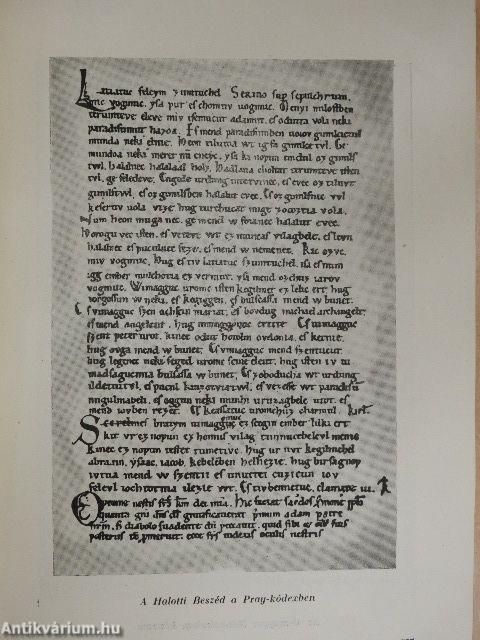 Latiatuc feleym zumtuchel Sermo sup sepulchrum.
mic vogmuc. ysa pur es chomuv uogmuc. Menyi milostben
terumteve eleve miv isemucut adamut. es odutta vola neki
paradisumut hazoa. Es mend paradisumben uolov gimilcictul
munda neki elnie. Heon tilutoa wt ig fa gimilce tvl. Ge
mundoa neki meret nū eneyc. ysa ki nopun emdul oz gimils
twl. halalnec halalaal holz. Hadlaua choltat terumteve isten
tvl. ge feledeve. Engede urdung intetvinec. es evec oz tiluvt
gimilstwl. es oz gimilsben halalut evec. Es oz gimilsnec vvl
keseruv uola vize. hug turchucat mige zocoztia vola.
Num heon muga nec. ge mend w foianec halalut evec.
Horogu vec isten. es veteve wt ez muncas vilagbele. es levn
halalnec es puculnec feze. es mend w nemenec. Kic ozvc.
miv vogmuc. Hug es tiv latiatuv szumtuchel. isa es num
igg ember mulchotia ez vermut. ysa mend ozchuz iarov
vogmuc. Wimagguc uromv isten kegilmet ez lelic ert. hug
iorgossun w neki. es kegiggen. es bulsassa mend w bunet.
Es vimagguc szen achscin mariat. es bovdug michael archangelt.
es mend angelcut. hug uimaggonoc erette. Es uimagguc
szent peter urot. kinec odut hotolm ovdonia. es ketnie.
hug ovga mend w bunet. Es vimagguc mend szentucut.
hug legenec neki seged uromc scine eleut. hug isten iv ui
madsagucmia bulsassa w bunet. Es zoboducha wt urdung
ildetuitvl. es pucul kinzotviatwl. es vezesse wt paradisū
nugulmabeli. es oggun neki munhi uruzagbele utot. es
mend iovben rezet. Es keassatuc uromchuz charmul. Kirl.
Scerelmes bratym uimagguc ez scegin ember lilki ert.
kit vr ez nopun ez homus vilag timnucebelevl mente.
kinec ez nopun testet tumetivc. hug ur uvt kegilmehel
abraam. ysaac. iacob. kebeleben helhezie. hug birsagnop
ivtva mend w szentii es unuttei cuzicun iov
felevl iochtotnia ilezie wt. Es tivbennetuc. clamate iii. K.
A Halotti Beszéd a Pray-kódexben
Antikvárium.hu